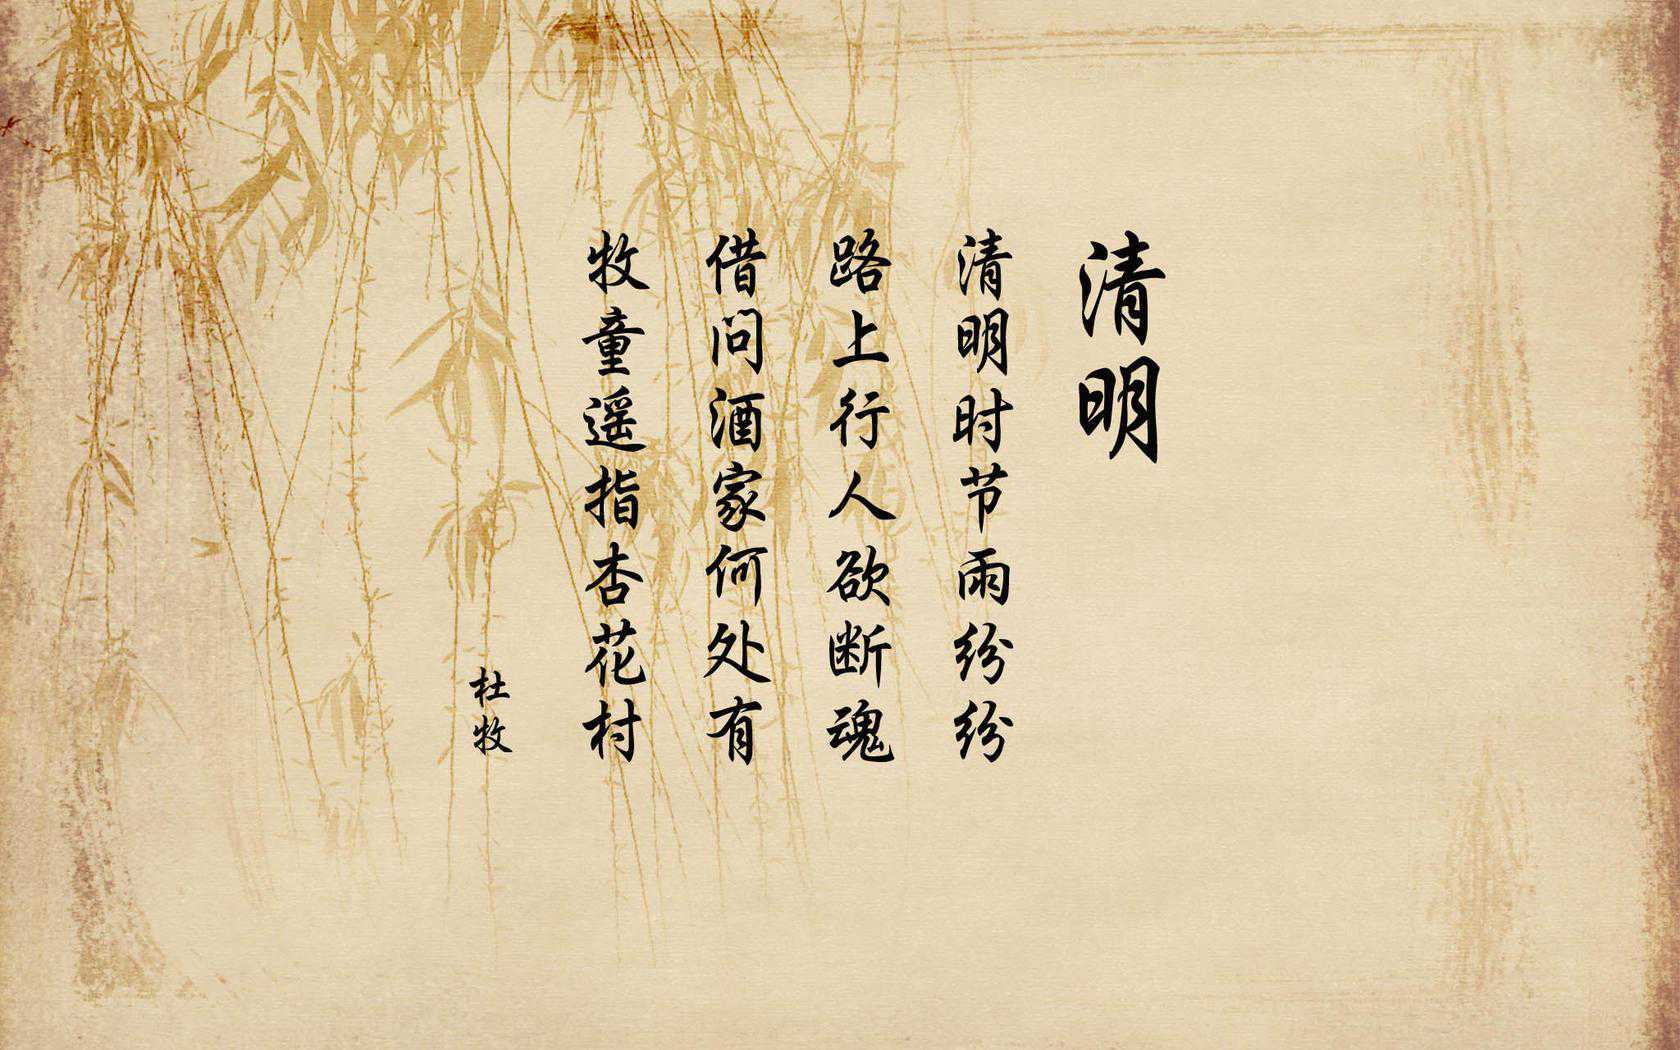 清明
清明时节雨纷纷
路上行人欲断魂
借问酒家何处有
牧童遥指杏花村
杜牧